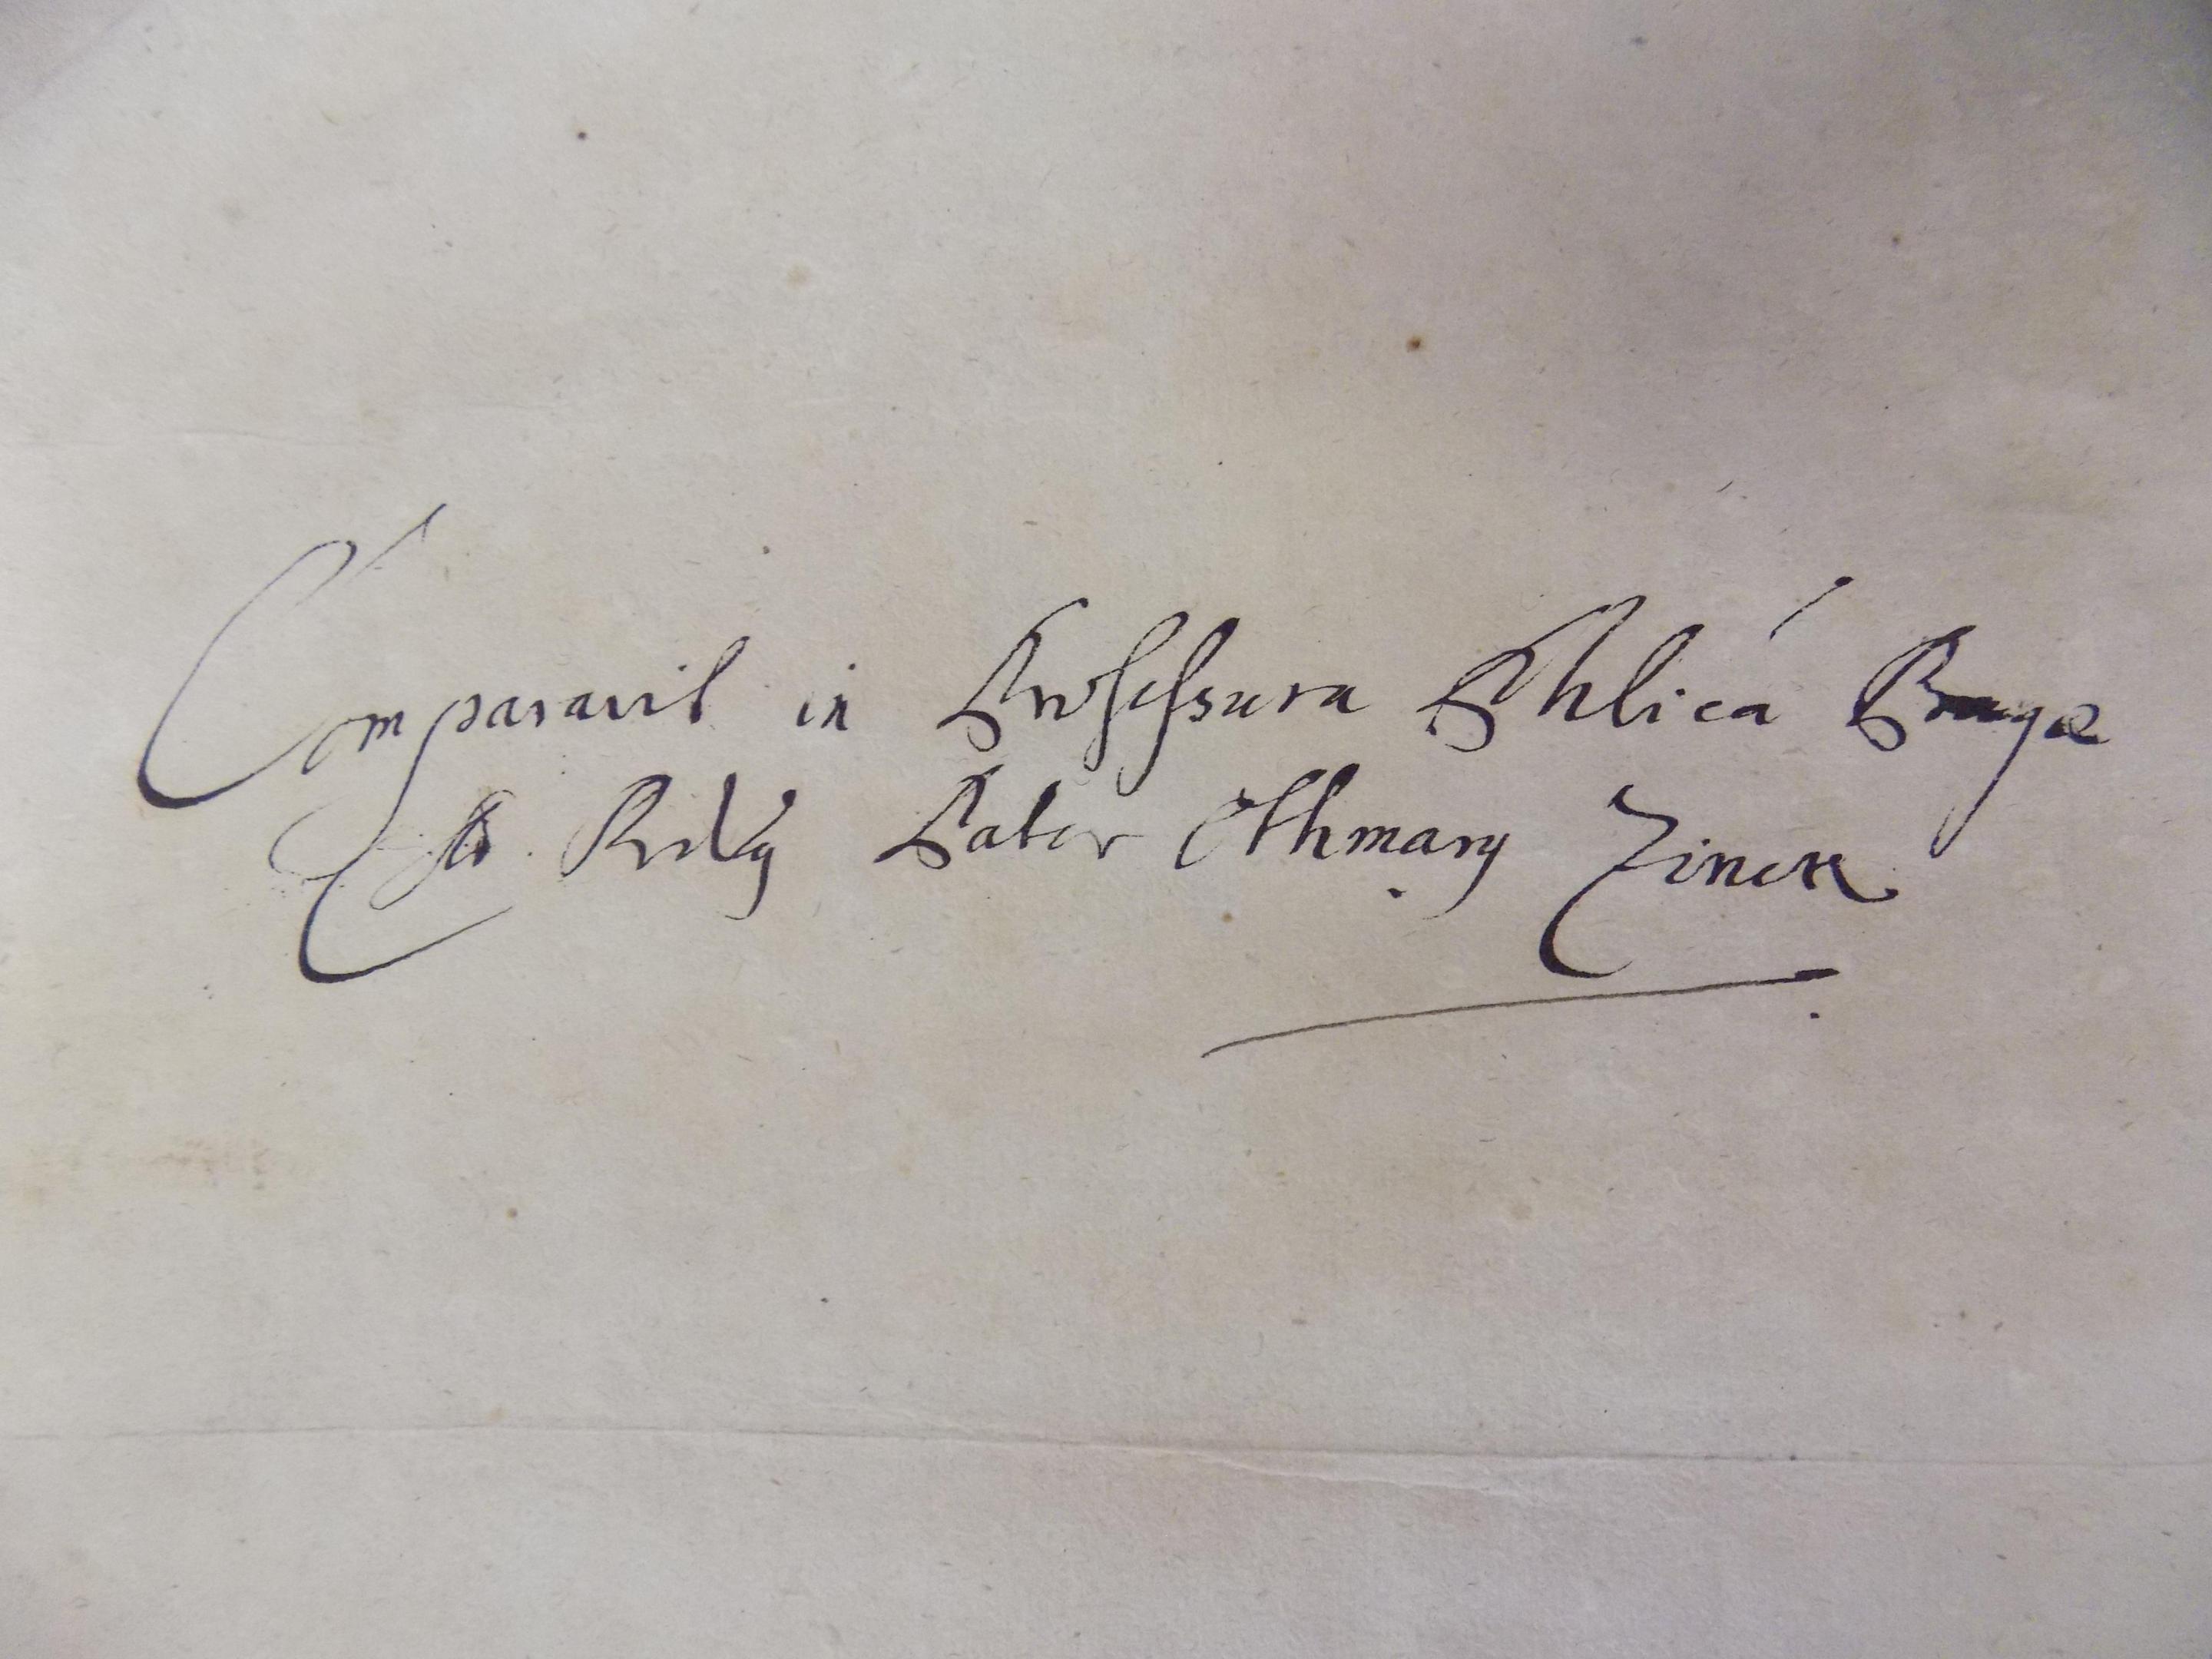 Comparavit in Professura Phlicâ Pragæ
Rndus Pater Othmarus Zincke